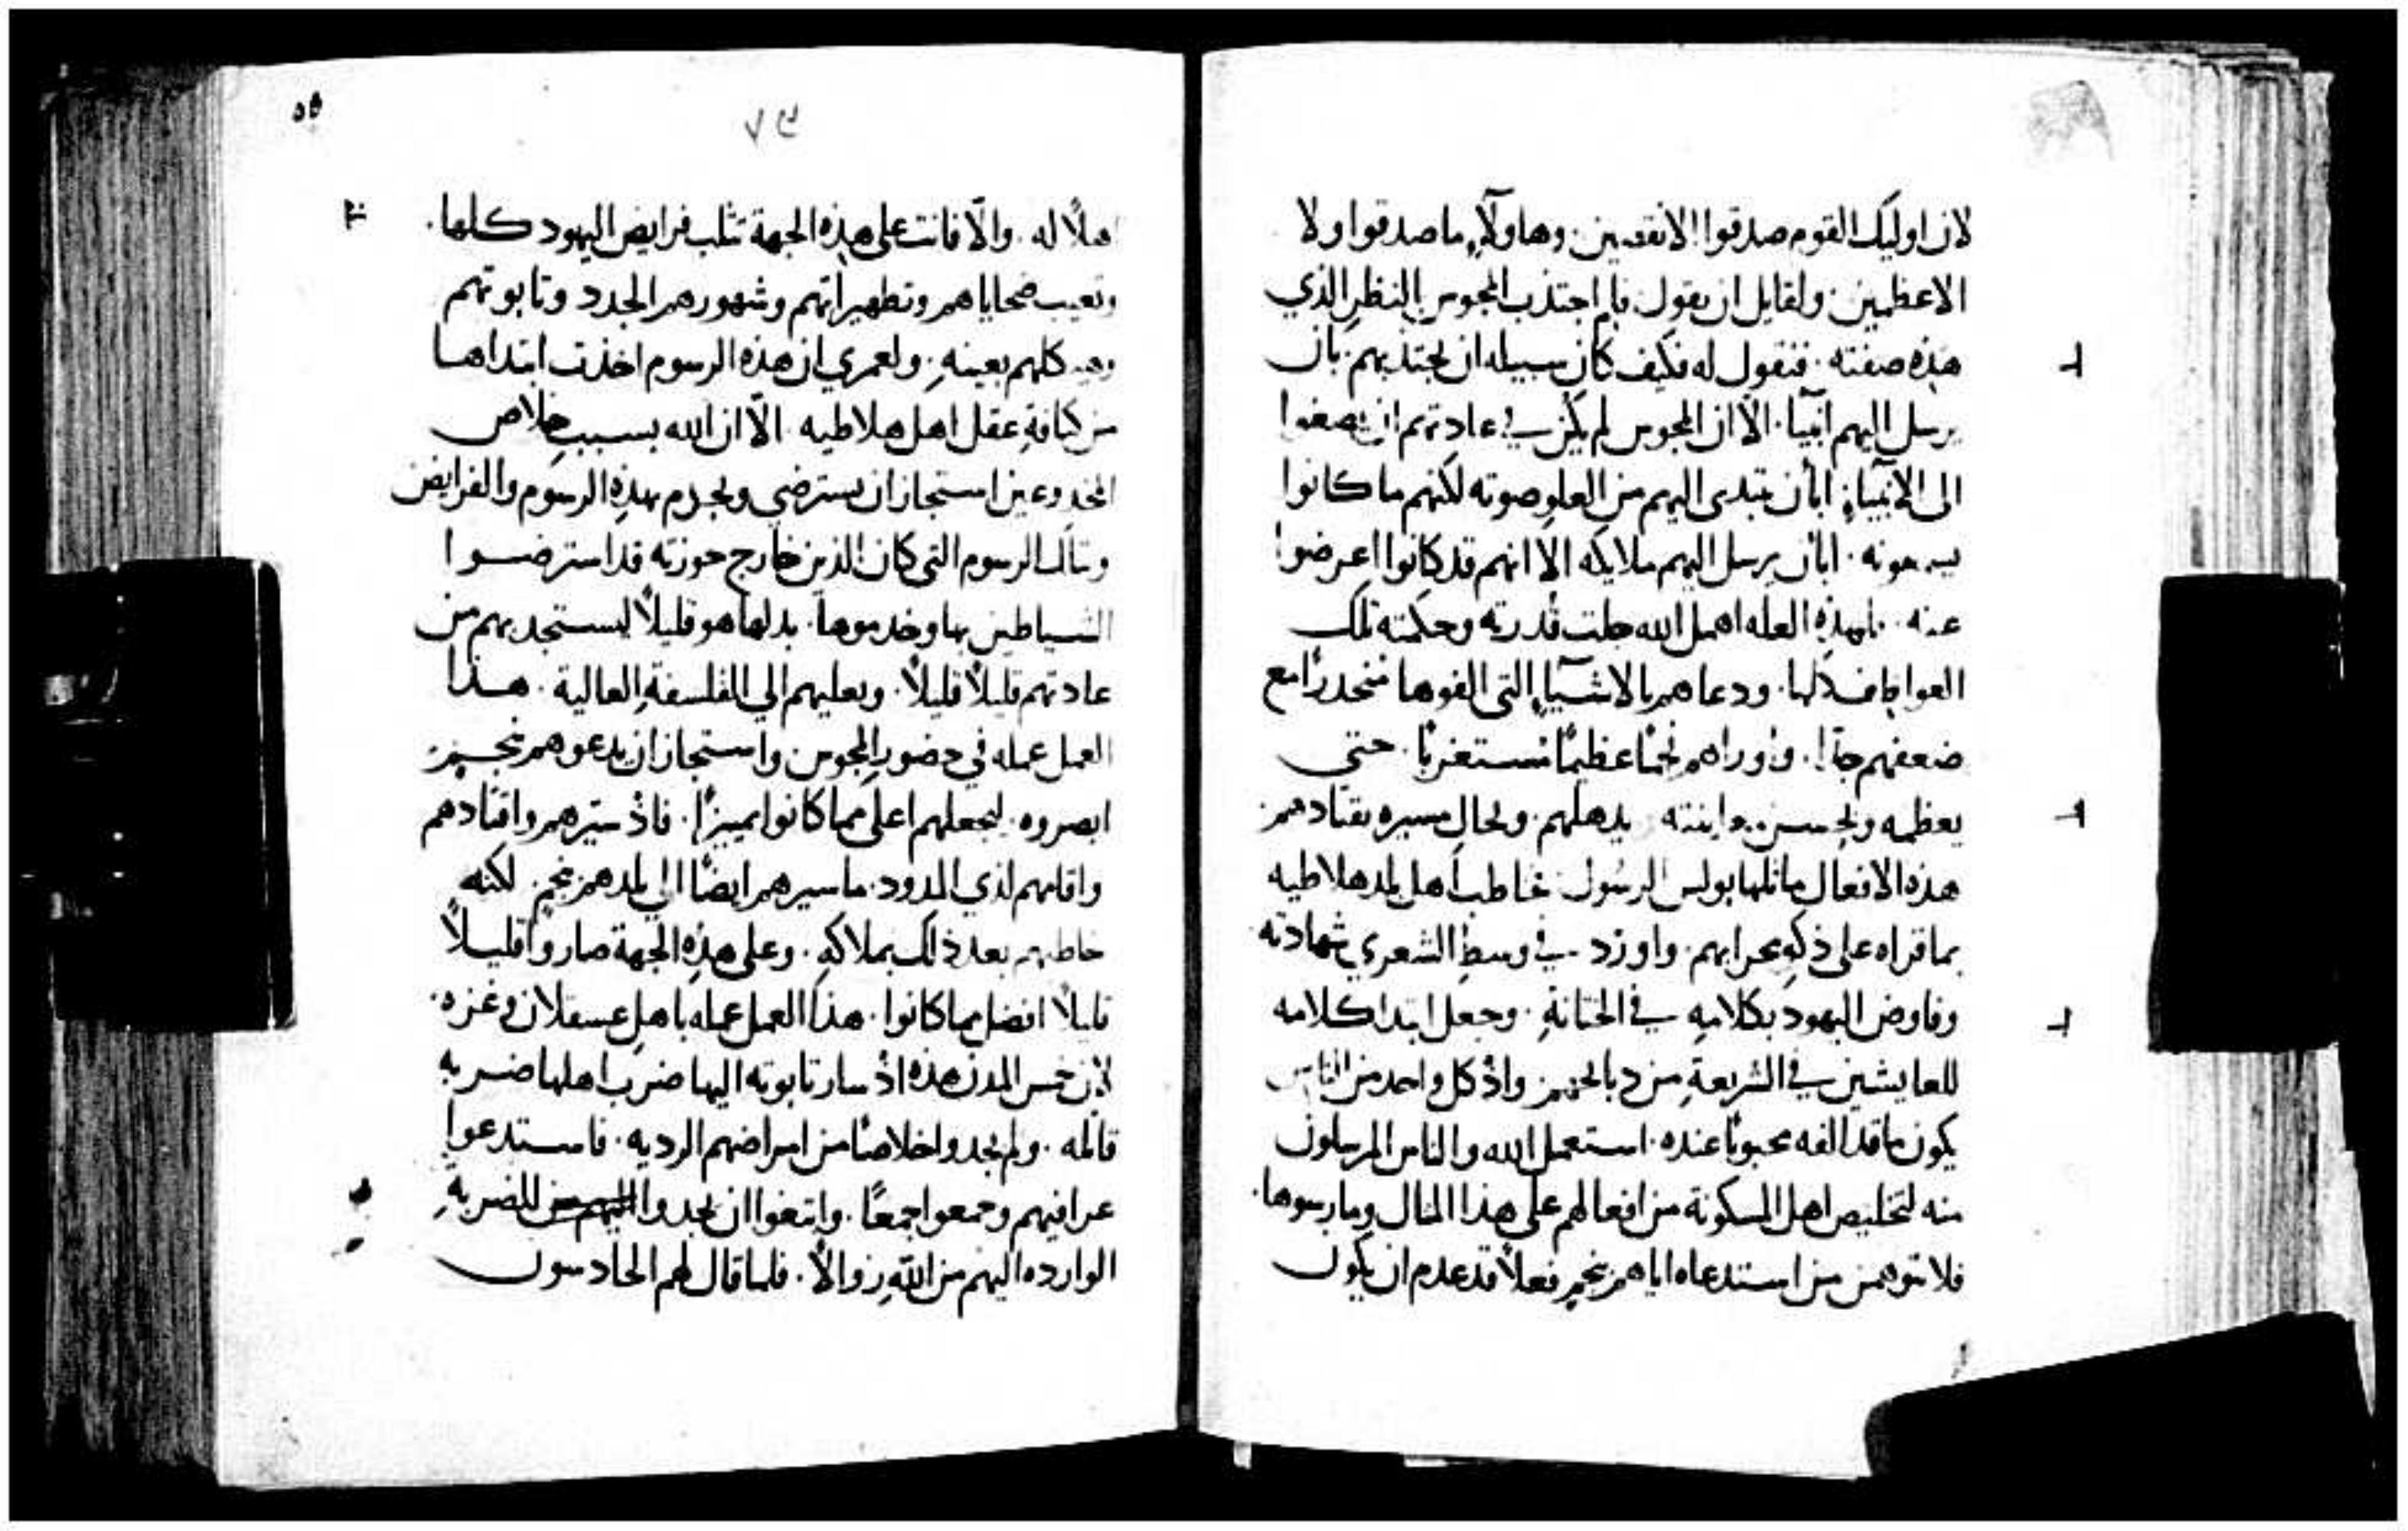 لان اوليك القوم صدقوا الانقصين. وهاولآء ما صدقوا ولا
الاعظمين. ولقايل ان يقول فلم اجتذب المجوس بالنظر الذي
هذه صفته. فنقول له فكيف كان سبيله ان يجتذبهم. بان
يرسل اليهم انبيآ. الا ان المجوس لم يكن في عادتهم ان يصغوا
الى الانبيآء. ابأن يبتدى اليهم من العلو صوته لكنهم ما كانوا
يسمعونه. ابأن يرسل اليهم ملايكه الا انهم قد كانوا اعرضوا
عنه. فلهذه العله اهمل الله جلت قدرته وحكمته تلك
كلها. ودعاهم بالاشيآء التي الفوها منحدرًا مع
ضعفهم جدًا. واوراهم نجمًا عظيمًا مستغربًا. حتى
يعظمه ويحسن معاينته يدهلهم. وبحال مسيره يقتادهم
هذه الافعال ماثلها بولس الرسول خاطب اهل بلد هلاطيه
بما قراه على ذكه محرابهم. واورد في وسط الشعري شهادته
وفاوض اليهود بكلامه في الختانة. وجعل ابتدا كلامه
للعايشين في الشريعة من دبايحهم واذ كل واحد من الناس
يكون ما قد الفه محبوبًا عنده. استعمل الله والناس المرسلون
منه لتخليص اهل المسكونة من افعالهم على هذا المثال ومارسوها.
فلا تتوهمن من استدعاه اياهم بنجم فعلاً قد عدم ان يكون
٥٥
٧٣
اهلاً له. والّا فانت على هذه الجهة تثلب فرايض اليهود كلها.
وتعيب ضحاياهم وتطهيراتهم وشهورهم الجدد وتابوتهم
وهيكلهم بعينه. ولعمري ان هذه الرسوم اخذت ابتداها
من كثافة عقل اهل هلاطيه. الّا ان الله بسبب خلاص
المخدوعين استجاز ان يسترضي ويخدم بهذه الرسوم والفرايض
وتلك الرسوم التي كان الذين خارج حوزته قد استرضوا
الشياطين بها وخدموها. بدلها هو قليلاً ليستجد بهم من
عادتهم قليلاً قليلاً. ويعليهم الي الفلسفة العالية. هذا
العمل عمله في حضور المجوس واستجاز ان يدعوهم بنجم
ابصروه. ليجعلهم اعلى مما كانوا تمييزًا. فاذ سيرهم واقتادهم
واقامهم لذي المدود. ما سيرهم ايضًا الي بلدهم بنجم. لكنه
خاطبهم بعد ذلك بملاكه. وعلى هذه الجهة صاروا قليلاً
قليلاً افضل مما كانوا. هذا العمل عمله باهل عسقلان وغزه.
لان خمس المدن هذه اذ سار تابوته اليها ضرب اهلها ضربه
قاتله. ولم يجدوا خلاصًا من امراضهم الرديه. فاستدعوا
عرافيهم وجمعوا جمعًا. وابتغوا ان يجدوا للضربة
الوارده اليهم من الله زوالاً. فلما قال لهم الحادسون